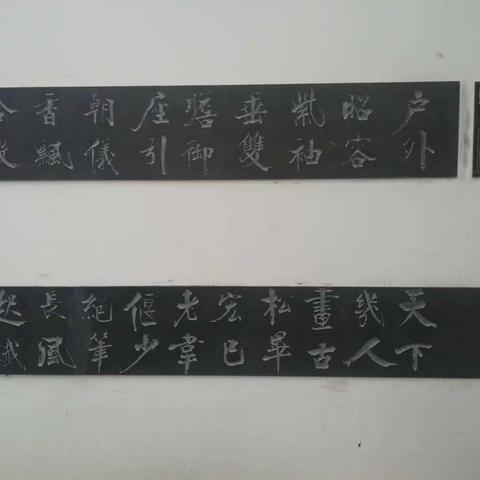 户外
昭容
紫袖
垂雙
瞻御
座引
朝儀
香飄
合
天下
幾人
畫古
松畢
宏已
老韋
偃少
絕筆
長風
起